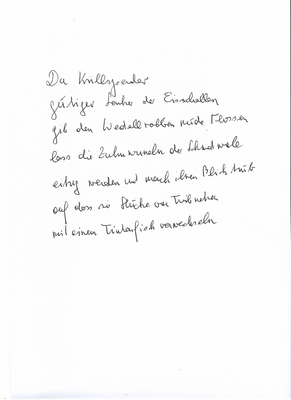 Du Krillspender
gütiger Lenker der Eisschollen
gib den Weddellrobben müde Flossen
lass die Zahnwurzeln der Schwertwale
eitrig werden und mach ihren Blick trüb
auf dass sie Stücke von Treibnetzen
mit einem Tintenfisch verwechseln